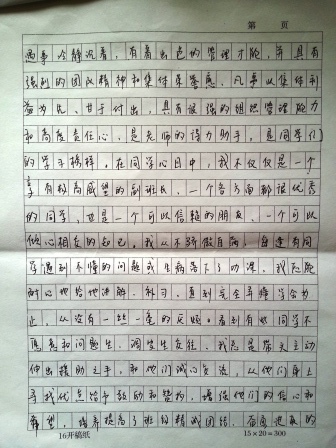 第 页
遇事冷静沉着，有着出色的管理才能，并具有
强烈的团队精神和集体荣誉感，凡事以集体利
益为先，甘于付出，具有较强的组织管理能力
和高度责任心，是老师的得力助手，是同学们
的学习榜样。在同学心目中，我不仅仅是一个
享有极高威望的副班长，一个各方面都很优秀
的同学，也是一个可以信赖的朋友，一个可以
倾心相交的知己。我从不骄傲自满，每逢有同
学遇到不懂的问题或生病落下了功课，我总能
耐心地给他讲解、补习，直到完全弄懂学会为
止，从没有一丝一毫的厌烦。看到有些同学不
愿意和问题生、调皮生交往，我总是带头主动
伸出援助之手，和他们诚心交流，从他们身上
寻找优点给予鼓励和赞扬，增强他们的信心和
希望，培养提高了班级精诚团结、奋勇
16开稿纸 15×20=300